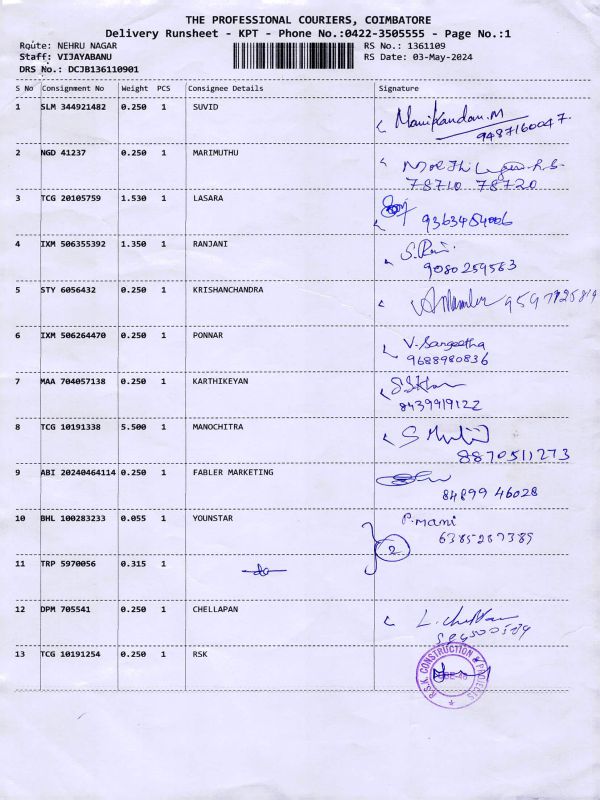 THE PROFESSIONAL COURIERS, COIMBATORE
Delivery Runsheet - KPT - Phone No.:0422-3505555 - Page No.:1
Route: NEHRU NAGAR RS No.: 1361109
Staff: VIJAYABANU RS Date: 03-May-2024
DRS No.: DCJB136110901
S No Consignment No Weight PCS Consignee Details Signature
1 SLM 344921482 0.250 1 SUVID Manikandan.M
9487160047.
2 NGD 41237 0.250 1 MARIMUTHU
78710 78720
3 TCG 20105759 1.530 1 LASARA
9363484006
4 IXM 506355392 1.350 1 RANJANI S.Rani
9080259563
5 STY 6056432 0.250 1 KRISHANCHANDRA
6 IXM 506264470 0.250 1 PONNAR V.Sangeetha
9688980836
7 MAA 704057138 0.250 1 KARTHIKEYAN
8439919122
8 TCG 10191338 5.500 1 MANOCHITRA
8870511273
9 ABI 20240464114 0.250 1 FABLER MARKETING
84899 46028
10 BHL 100283233 0.055 1 YOUNSTAR P.mani
6385287385
2
11 TRP 5970056 0.315 1 -do-
12 DPM 705541 0.250 1 CHELLAPAN L.Chellan
13 TCG 10191254 0.250 1 RSK
R.S.K. CONSTRUCTION & PROJECTS